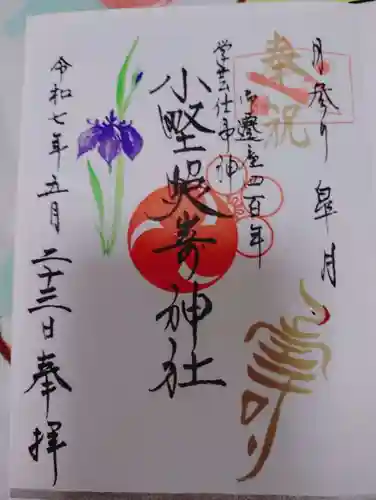 月参り 皐月
奉祝
御遷座四百年
学芸仕事神
小野照崎神社
令和七年五月二十三日奉拝